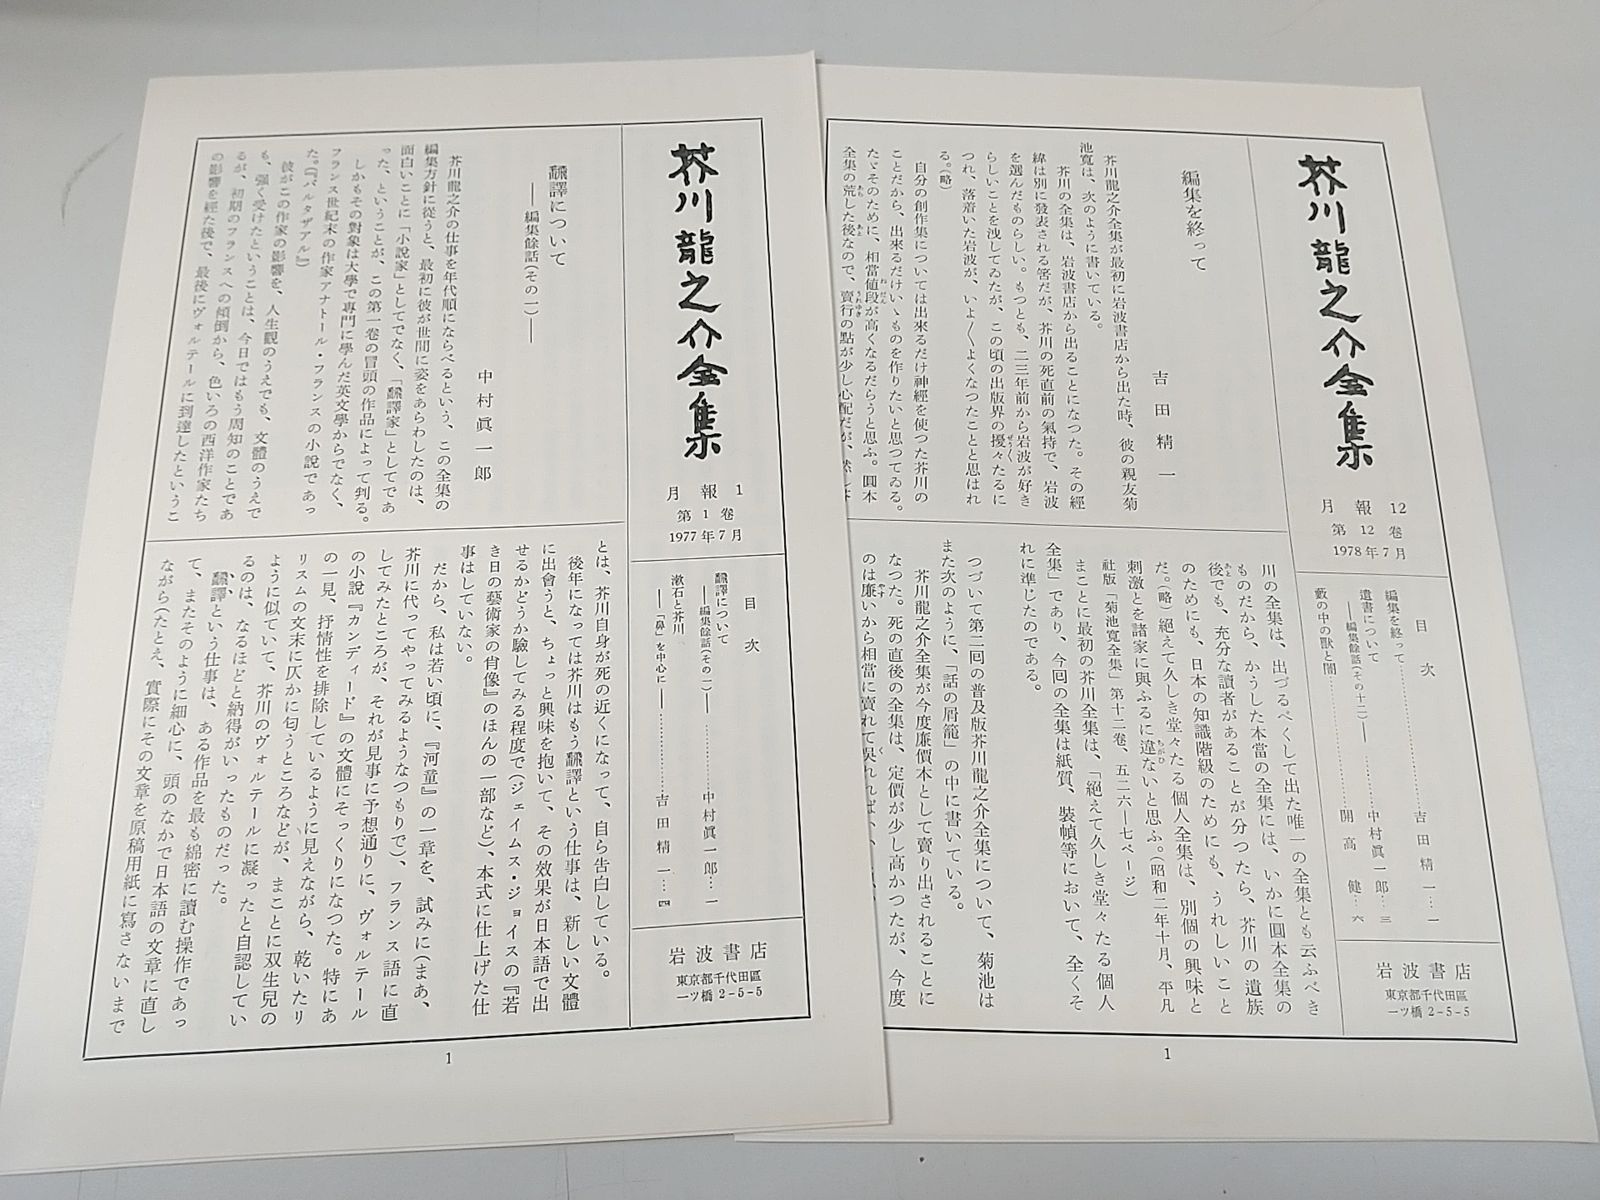 芥川龍之介全集
月報 1
第 1 卷
1977年7月
目次
飜譯について
――編集餘話(その一)――…………中村眞一郎…一
漱石と芥川
――「鼻」を中心に――…………吉田精一…四
岩波書店
東京都千代田區
一ツ橋 2-5-5
飜譯について
――編集餘話(その一)――
中村眞一郎
芥川龍之介の仕事を年代順にならべるという、この全集の
編集方針に從うと、最初に彼が世間に姿をあらわしたのは、
面白いことに「小說家」としてでなく、「飜譯家」としてであ
った、ということが、この第一卷の冒頭の作品によって判る。
しかもその對象は大學で專門に學んだ英文學からでなく、
フランス世紀末の作家アナトール・フランスの小說であっ
た。(『バルタザアル』)
彼がこの作家の影響を、人生觀のうえでも、文體のうえで
も、强く受けたということは、今日ではもう周知のことであ
るが、初期のフランスへの傾倒から、色いろの西洋作家たち
の影響を經た後で、最後にヴォルテールに到達したというこ
とは、芥川自身が死の近くになって、自ら告白している。
後年になっては芥川はもう飜譯という仕事は、新しい文體
に出會うと、ちょっと興味を抱いて、その效果が日本語で出
せるかどうか驗してみる程度で(ジェイムス・ジョイスの『若
き日の藝術家の肖像』のほんの一部など)、本式に仕上げた仕
事はしていない。
だから、私は若い頃に、『河童』の一章を、試みに(まあ、
芥川に代ってやってみるようなつもりで)、フランス語に直
してみたところが、それが見事に予想通りに、ヴォルテール
の小說『カンディード』の文體にそっくりになった。特にあ
の一見、抒情性を排除しているように見えながら、乾いたリ
リスムの文末に仄かに匂うところなどが、まことに双生兒の
ように似ていて、芥川のヴォルテールに凝ったと自認してい
るのは、なるほどと納得がいったものだった。
飜譯という仕事は、ある作品を最も綿密に讀む操作であっ
て、またそのように細心に、頭のなかで日本語の文章に直し
ながら(たとえ、實際にその文章を原稿用紙に寫さないまで
1
芥川龍之介全集
月報 12
第 12 卷
1978年7月
目次
編集を終って…………吉田精一…一
遺書について
――編集餘話(その十二)――…………中村眞一郎…三
藪の中の獸と闇…………開高健…六
岩波書店
東京都千代田區
一ツ橋 2-5-5
編集を終って
吉田精一
芥川龍之介全集が最初に岩波書店から出た時、彼の親友菊
池寬は、次のように書いている。
芥川の全集は、岩波書店から出ることになつた。その經
緯は別に發表される筈だが、芥川の死直前の氣持で、岩波
を選んだものらしい。もつとも、二三年前から岩波が好き
らしいことを洩してゐたが、この頃の出版界の擾々たるに
つれ、落着いた岩波が、いよ〳〵よくなつたことと思はれ
る。(略)
自分の創作集については出來るだけ神經を使つた芥川の
ことだから、出來るだけいゝものを作りたいと思つてゐる。
たゞそのために、相當値段が高くなるだらうと思ふ。圓本
全集の荒した後なので、賣行の點が少し心配だが、
川の全集は、出づるべくして出た唯一の全集とも云ふべき
ものだから、かうした本當の全集には、いかに圓本全集の
後でも、充分な讀者があることが分つたら、芥川の遺族
のためにも、日本の知識階級のためにも、うれしいこと
だ。(略)絕えて久しき堂々たる個人全集は、別個の興味と
刺激とを諸家に與ふるに違ないと思ふ。(昭和二年十月、平凡
社版「菊池寬全集」第十二卷、五二六―七ページ)
まことに最初の芥川全集は、「絕えて久しき堂々たる個人
全集」であり、今回の全集は紙質、裝幀等において、全くそ
れに準じたのである。
つづいて第二回の普及版芥川龍之介全集について、菊池は
また次のように、「話の屑籠」の中に書いている。
芥川龍之介全集が今度廉價本として賣り出されることに
なつた。死の直後の全集は、定價が少し高かつたが、今度
のは廉いから相當に賣れて吳れれば、
1